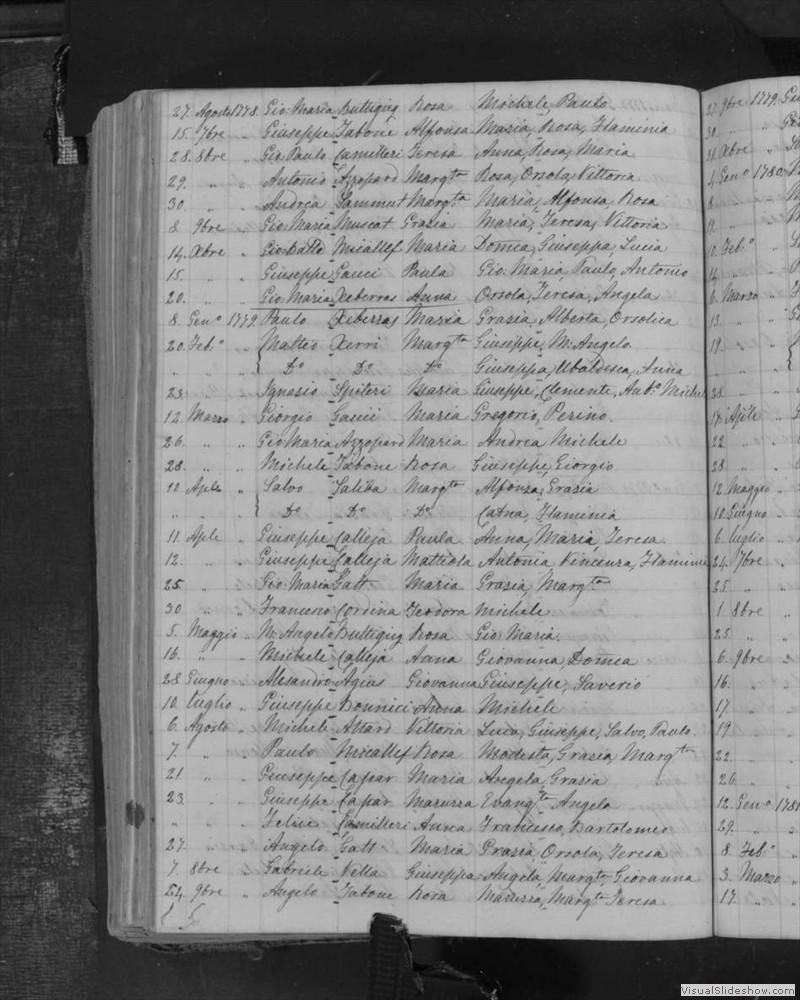 27. Agosto 1778. Gio: Maria Buttigieg Rosa Michele, Paulo
15. 7bre " Giuseppe Tabone Alfonsa Maria, Rosa, Flaminia
28. 8bre " Gio: Paulo Camilleri Teresa Anna, Rosa, Maria
29. " " Antonio Azzopard Margta Rosa, Orsola, Vittoria
30 " " Andrea Sammut Margta Maria, Alfonsa, Rosa
8. 9bre " Gio: Maria Muscat Grazia Maria, Teresa, Vittoria
14. Xbre " Gio: Batta Micallef Maria Domca Giuseppa, Lucia
15. " " Giuseppe Gauci Paula Gio: Maria, Paulo, Antonio
20. " " Gio: Maria Xeberras Anna Orsola, Teresa, Angela
8. Geno 1779. Paulo Xeberras Maria Grazia, Alberta, Orsolica
20. Febo " { Matteo Xerri Margta Giuseppe, M: Angelo
" " " Do Do Do Giuseppa, Ubaldesca, Anna
23. " " Ignazio Spiteri Maria Giuseppe, Clemente, Anto Michel
12. Marzo " Giorgio Gauci Maria Gregorio, Perino.
26. " " Gio: Maria Azzopard Maria Andrea Michele
28. " " Michele Tabone Rosa Giuseppe, Giorgio
10. Aple " { Salvo Saliba Margta Alfonsa, Grazia
" " " Do Do Do Catna, Flaminia
11. Aple " Giuseppe Calleja Paula Anna, Maria, Teresa.
12. " " Giuseppe Calleja Mattiola Antonia Vincenza, Flaminia
25. " " Gio: Maria Gatt Maria Grazia, Margta
30 " " Francesco Cordina Teodora Michele
5. Maggio " M: Angelo Buttigieg Rosa Gio: Maria.
16. " " Michele Calleja Anna Giovanna, Domca
28. Giugno " Alesandro Agius Giovanna Giuseppe, Saverio
10. Luglio " Giuseppe Bonnici Anna Michele
6. Agosto " Michele Attard Vittoria Luca, Giuseppe, Salvo, Paulo.
7. " " Paulo Micallef Rosa Modesta, Grazia, Margta
21. " " Giuseppe Capar Maria Angela, Grazia
23. " " Giuseppe Capar Maruzza Evangta Angela
" " " Felice Camilleri Anna Francesco, Bartolomeo
27. " " Angelo Gatt Maria Grazia, Orsola, Teresa
7. 8bre " Gabriele Vella Giuseppa Angela, Margta, Giovanna
24. 9bre " Angelo Tabone Rosa Maruzza, Margta Teresa
27. 9bre 1779.
30. " "
21. Xbre "
4. Geno 1780.
8. " "
9. " "
10. Febo "
14. " "
6. Marzo "
13. " "
19. " " {
28. " "
17. Aple "
22. " "
28 " "
12. Maggio "
10. Giugno "
6. Luglio "
24. 7bre "
25. " "
1. 8bre "
25. " "
6. 9bre "
16. " "
17 " "
19. " "
22. " "
26. " "
12. Geno 1781
29. " "
8. Febo "
3. Marzo "
17. " "
VisualSlideshow.com